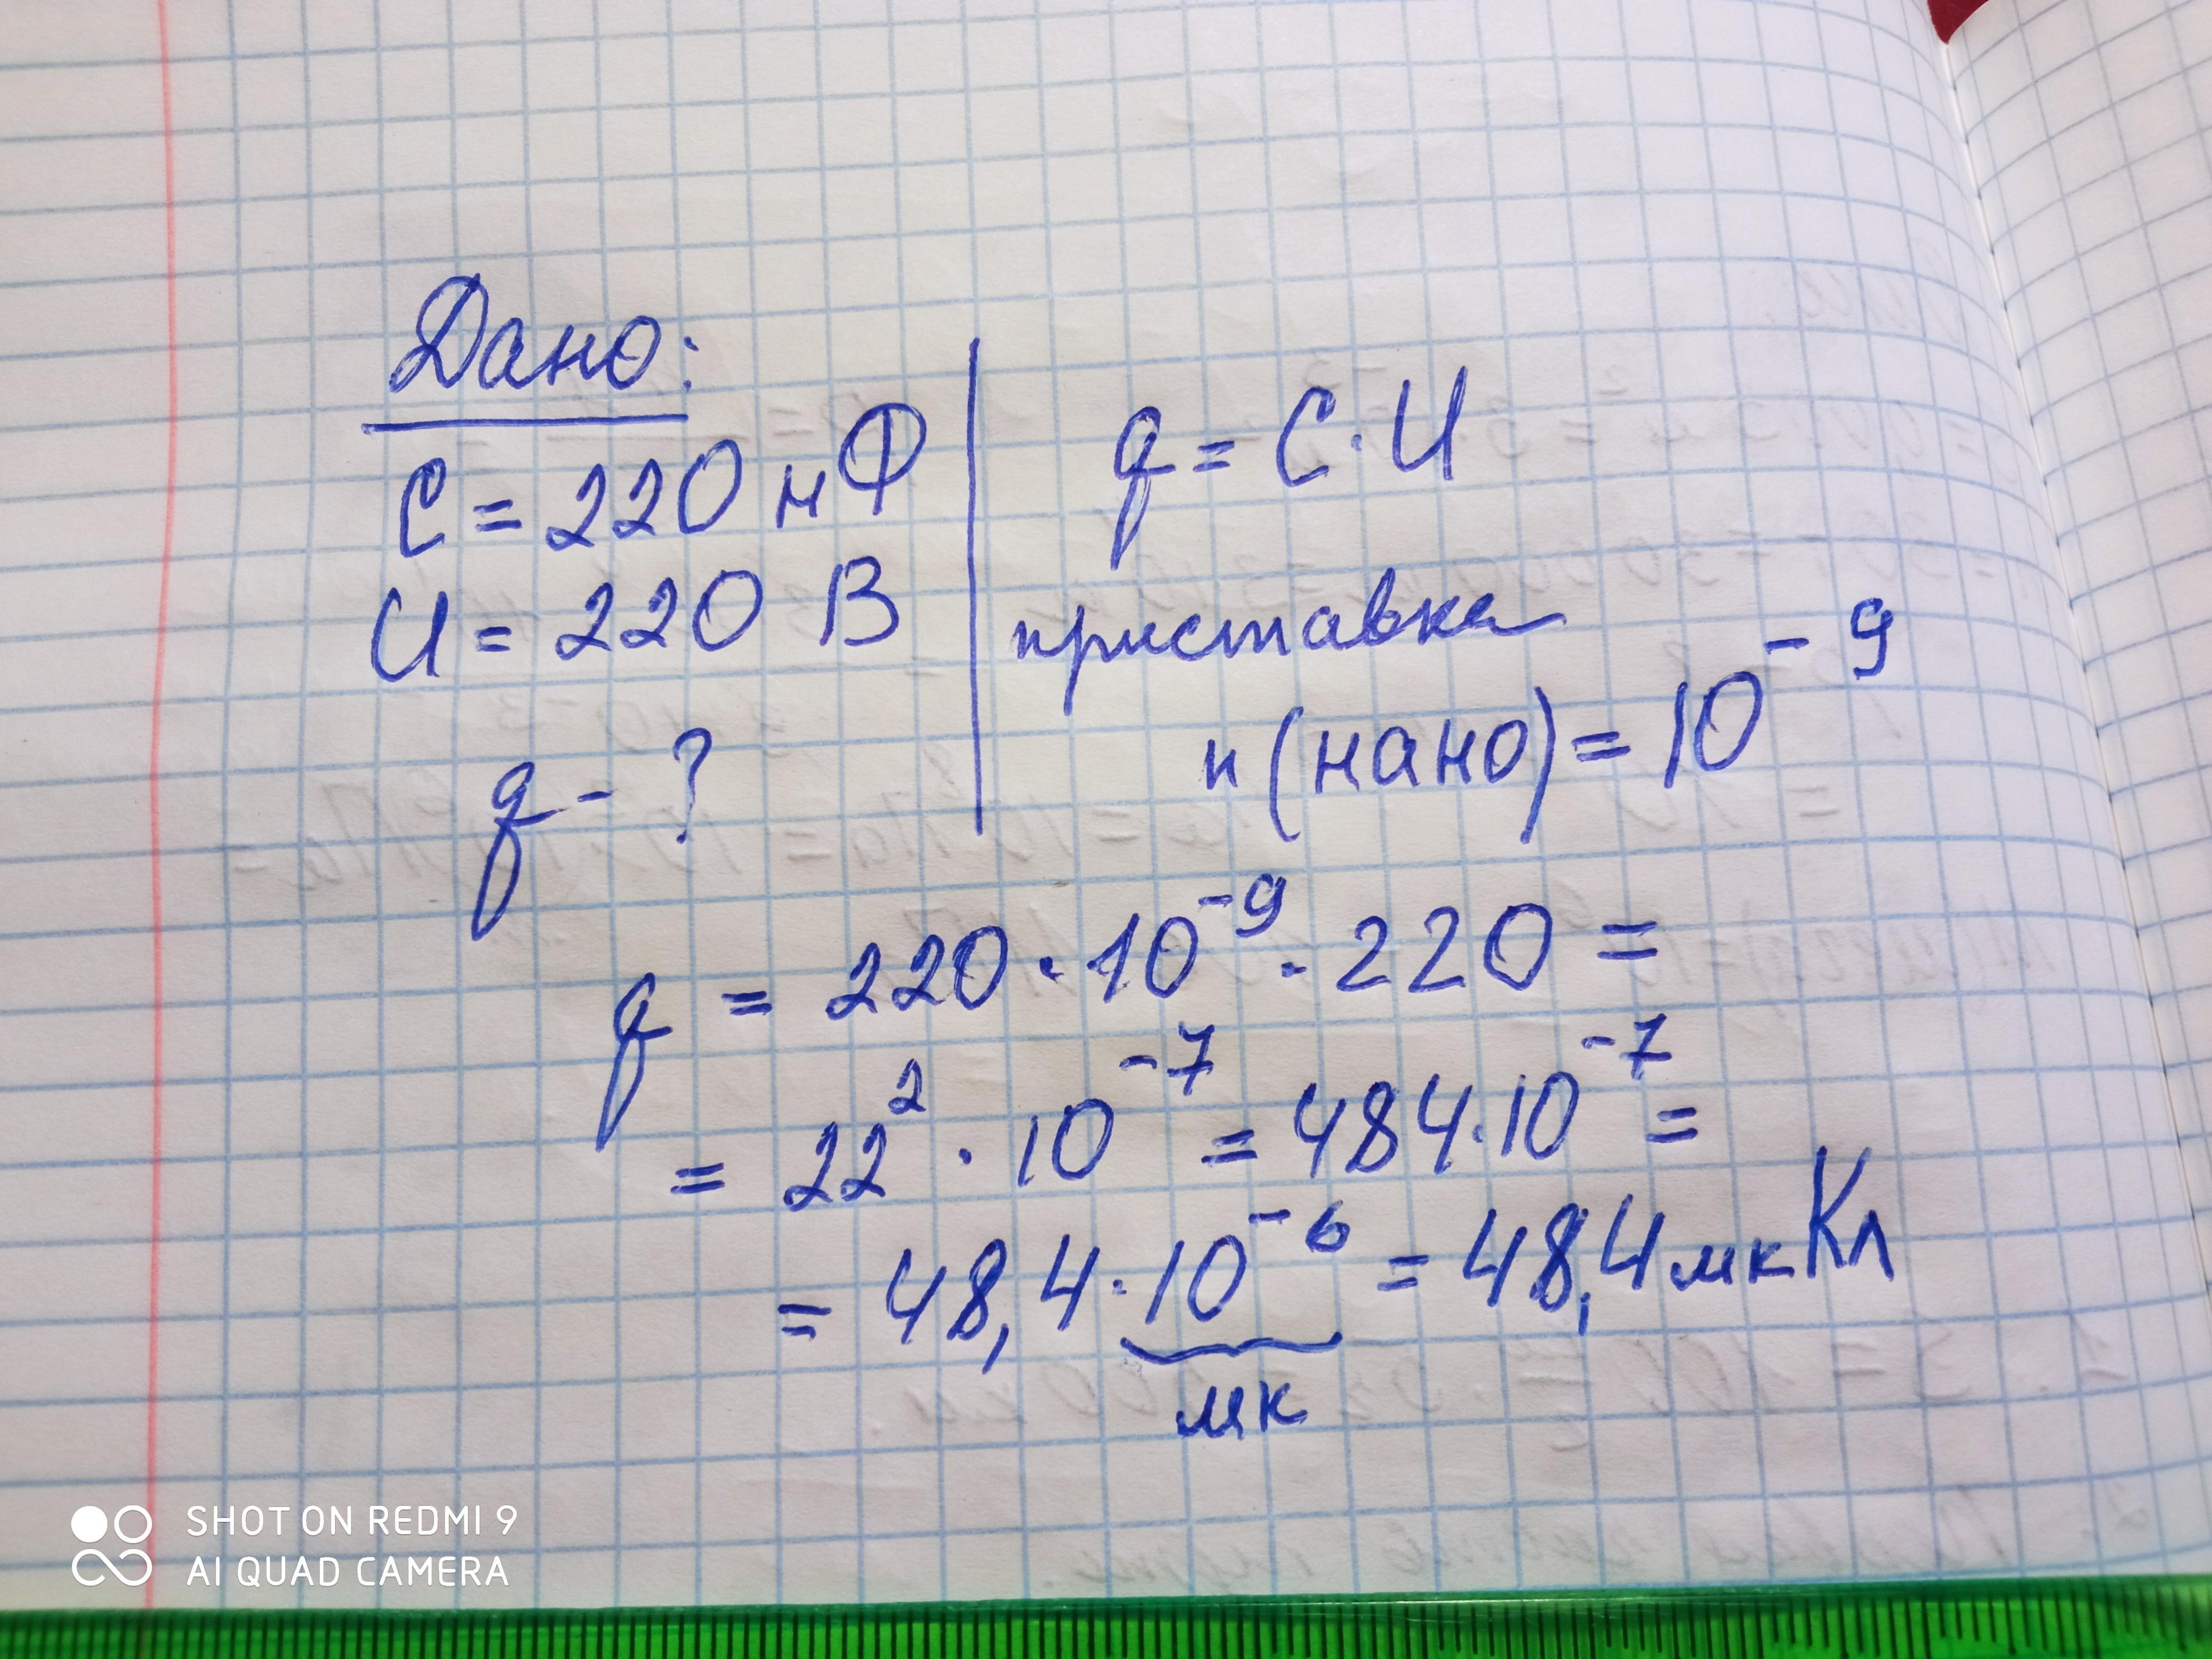 Дано:
C = 220 нФ
U = 220 В
q - ?
q = C · U
приставка
н (нано) = 10⁻⁹
q = 220 · 10⁻⁹ · 220 =
= 22² · 10⁻⁷ = 484 · 10⁻⁷ =
= 48,4 · 10⁻⁶ = 48,4 мкКл
мк
SHOT ON REDMI 9
AI QUAD CAMERA